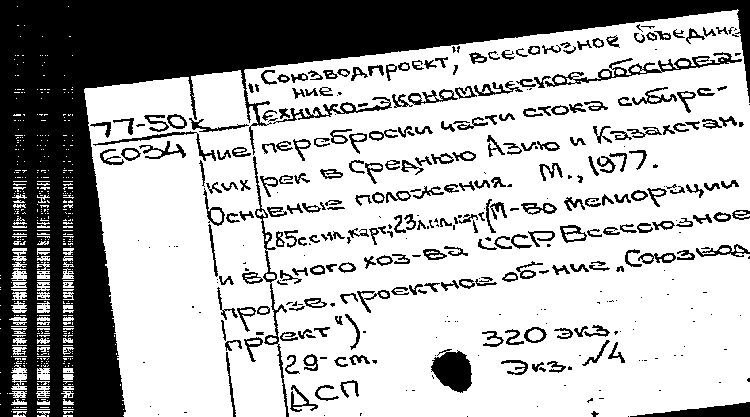 „Союзводпроект", всесоюзное объедине
ние.
77-50к Технико-экономическое обоснова-
6034 ние переброски части стока сибирс-
ких рек в Среднюю Азию и Казахстан.
Основные положения. М., 1977.
285с.с ил., карт; 23л.ил., карт (М-во мелиорации
и водного хоз-ва СССР. Всесоюзное
произв. проектное об-ние „Союзвод
проект").
29 см. 320 экз.
ДСП Экз. №4